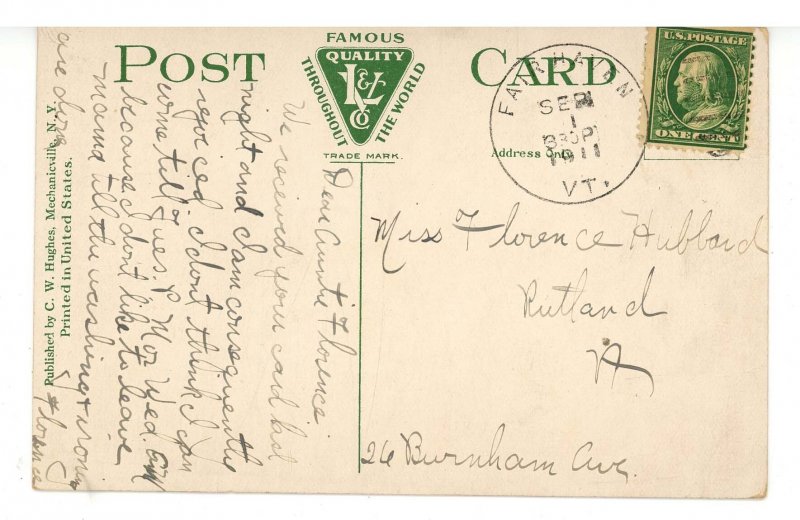 POST CARD
FAMOUS
QUALITY
THROUGHOUT THE WORLD
V & L Co
TRADE MARK.
Address Only
FAIR HAVEN
SEP
1
830P
1911
VT.
U.S. POSTAGE
ONE CENT
Miss Florence Hubbard
Rutland
Vt
26 Burnham Ave.
Dear Auntie Florence:
We received your card last
night and I am consequently
rejoiced. I don't think I can
come till Tues. P.M or Wed. A.M
because I don't like to leave
mama till the washing & ironing
are done
Florence
Published by C. W. Hughes, Mechanicville, N. Y.
Printed in United States.